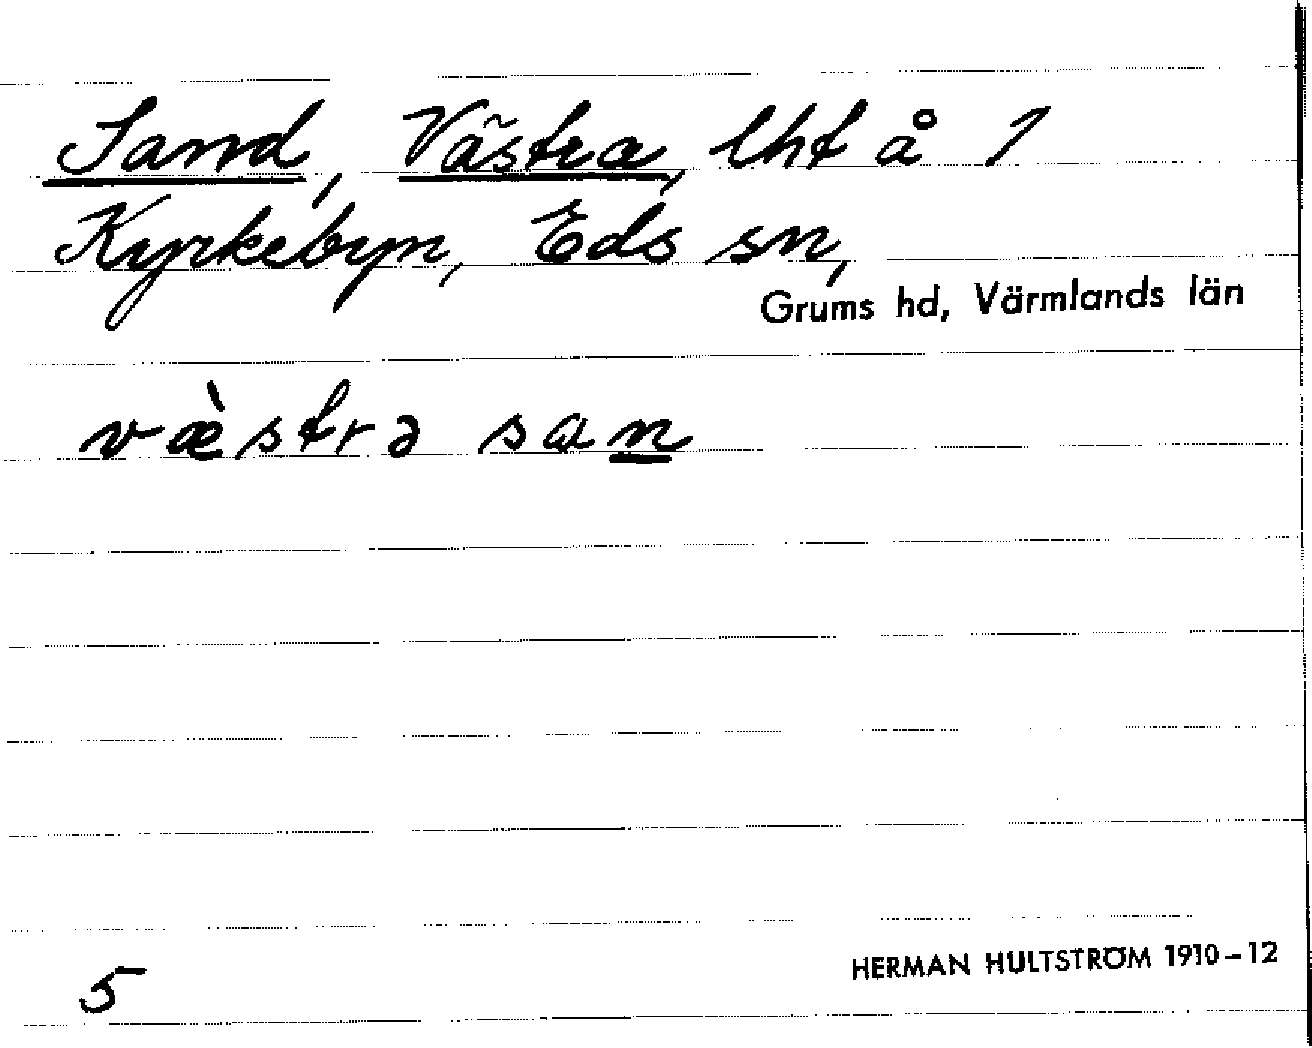 Sand, Västra, lht å 1
Kyrkebyn, Eds sn,
Grums hd, Värmlands län
væ̀strə san
5
HERMAN HULTSTRÖM 1910–12